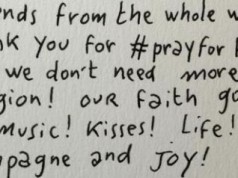 nds from the whole w
nk you for #prayfor
we don't need more
gion! our faith go
music! Kisses! Life!
pagne and JOY!